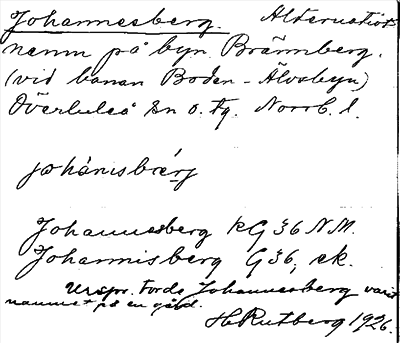 Johannesberg. Alternativt
namn på byn Brännberg.
(vid banan Boden - Älvsbyn)
Överluleå sn o. tg. Norrb. l.
johànisbræ̀rj
Johannesberg kG 36 N.M.
Johannisberg G 36, ek.
Urspr. torde Johannesberg varit
namnet på en gård.
H Rutberg 1926.